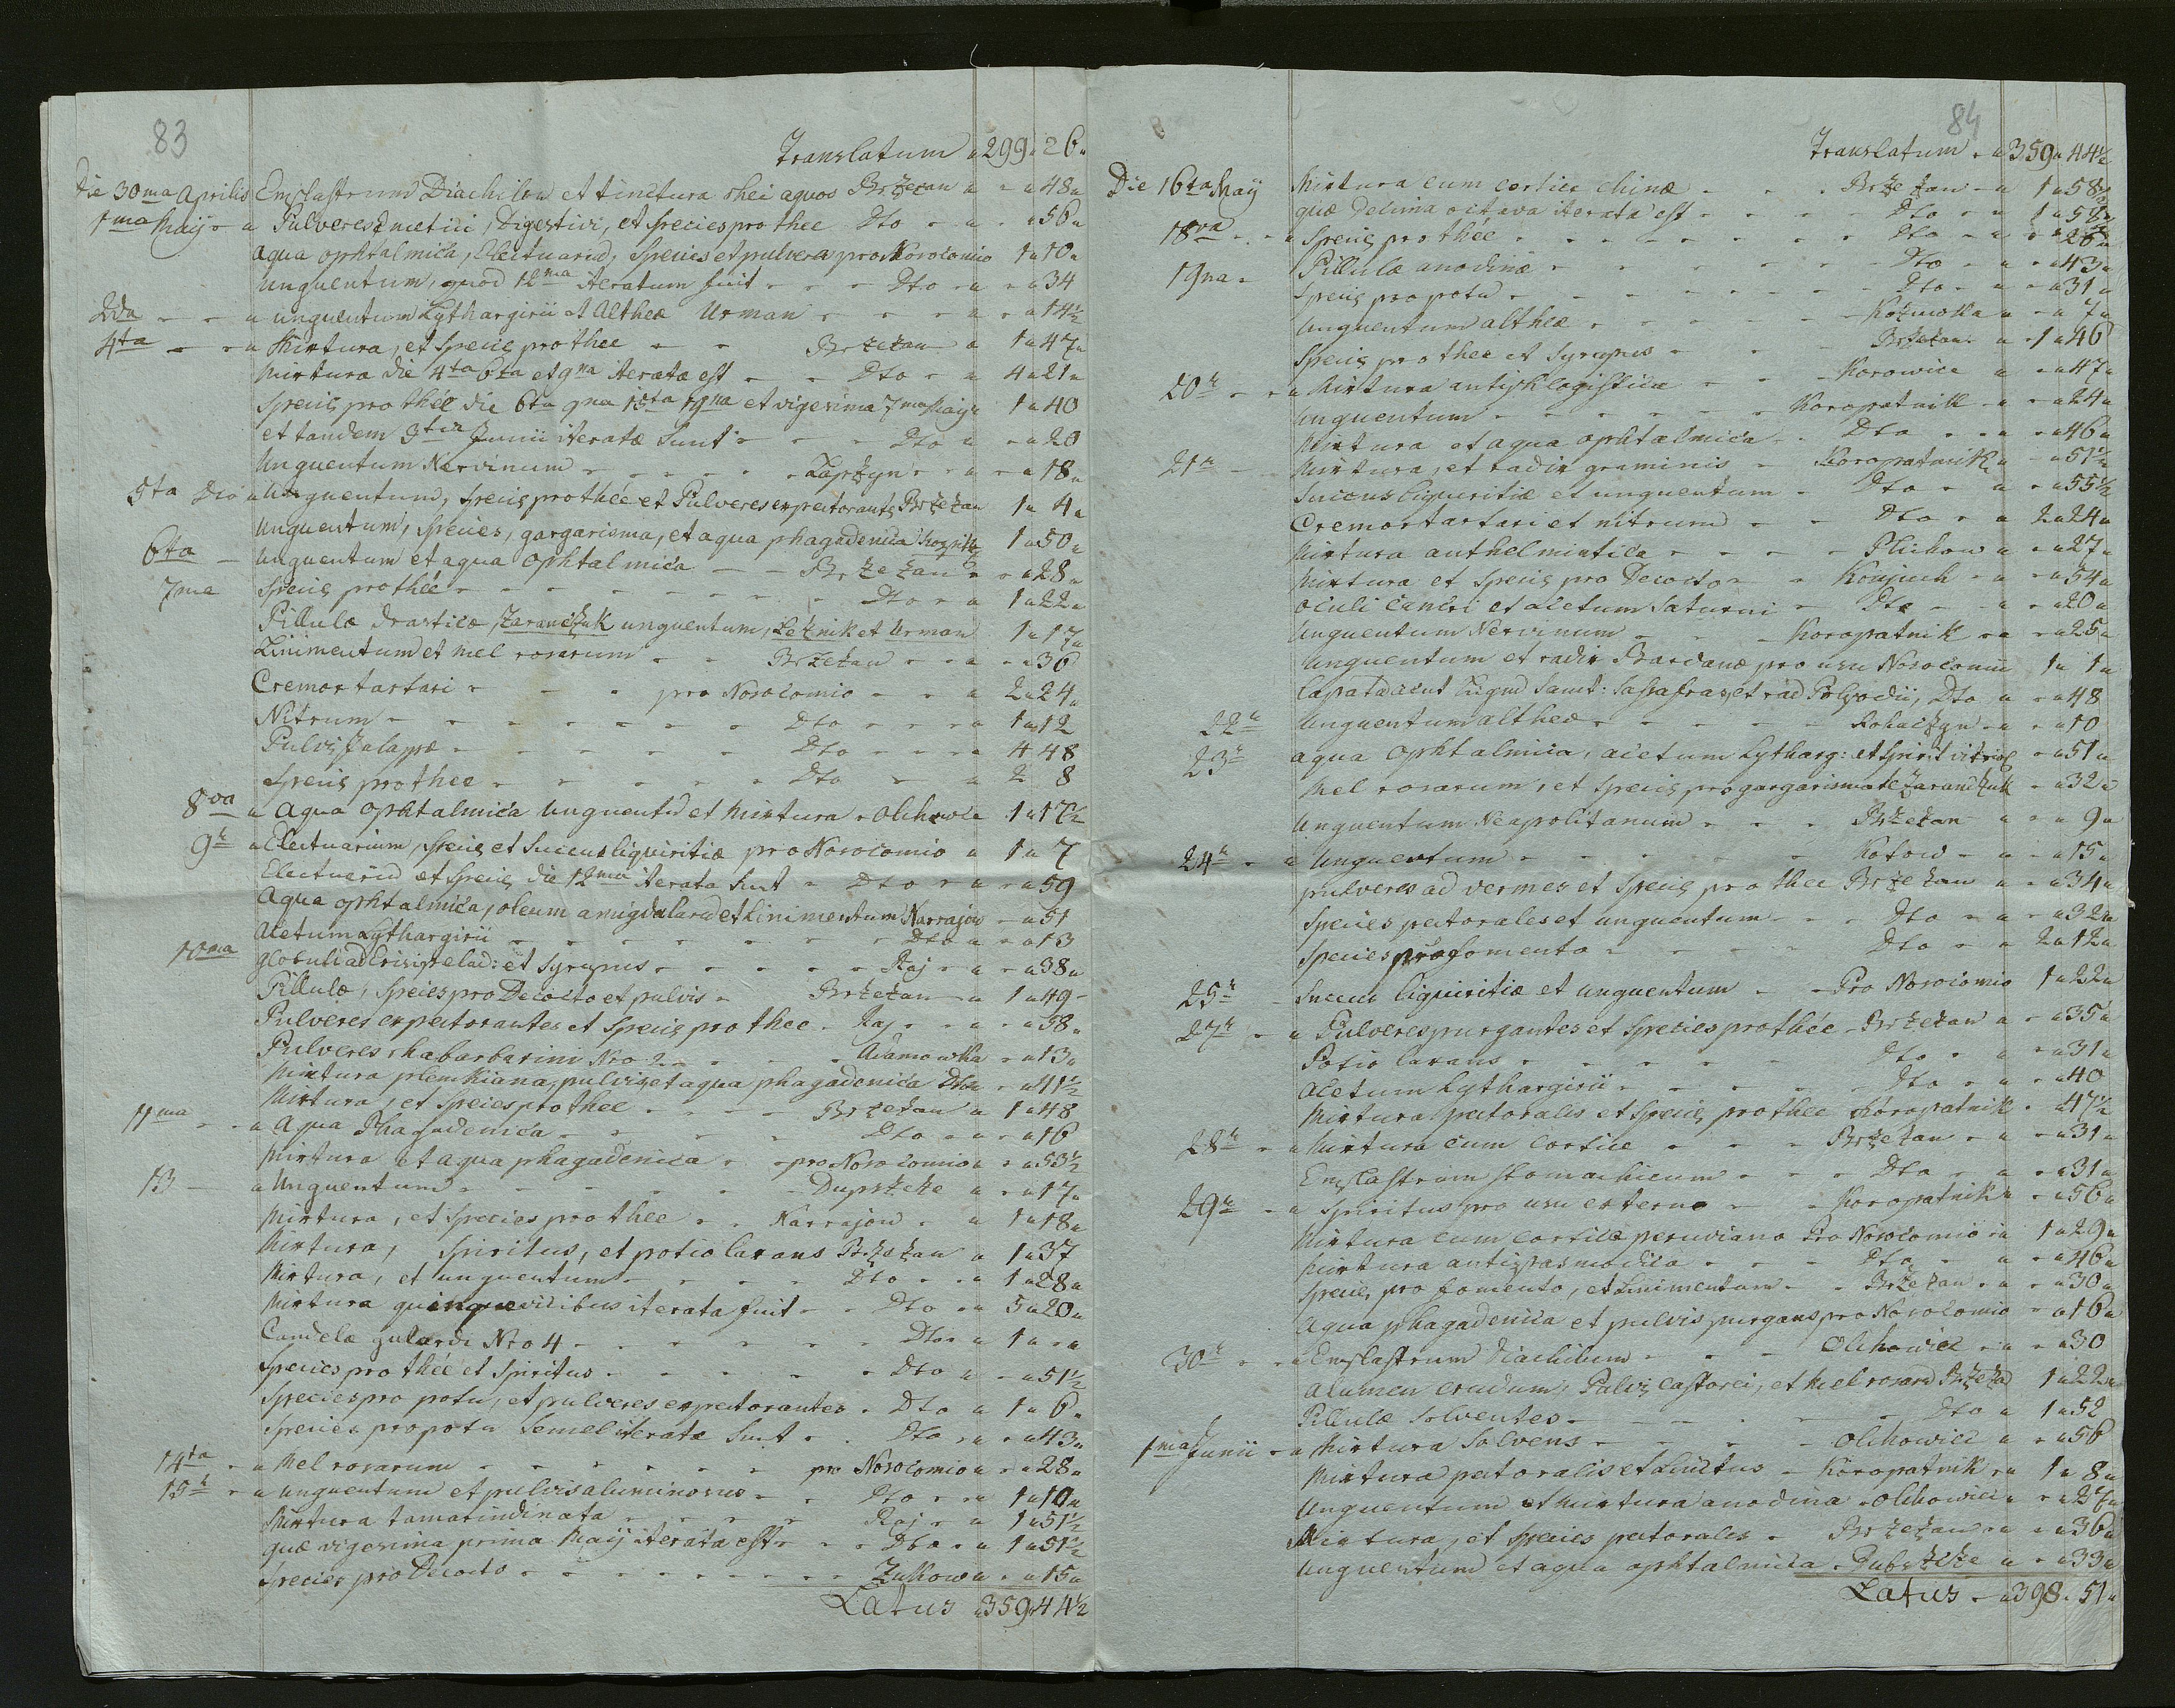 83
Translatum " 299 " 26 "
Die 30ma Aprilis Emplastrum Diachilon et tinctura rhei aquos Brzeżan " - " 48 "
1ma Maij - " Pulveres Emetici, Digestivi, et Species pro thee Dto - " - " 56 "
Aqua ophtalmica, Electuariu, Species et pulveres pro Nosocomio 1 " 10 "
Unguentum, quod 12ma iteratum fuit - - - Dto - " - " 34
2da - - " unguentum Lythargirii et Altheæ Urman - - - " - " 14½
4ta - - " Mixtura, et Species pro thee - - Brzeżan " 1 " 47 "
Mixtura die 4ta 6ta et 9na iterata est - - Dto - " 4 " 21 "
Species pro theé die 6ta 9na 15ta 19na et vigesima 7ma Maij " 1 " 40
et tandem 3tia Junii iteratæ sunt - - - Dto " - " 20
Unguentum Nervinum - - - - - Łapszyn - " - " 18 "
5ta Dto " Unguentum, Species pro theé et Pulveres expectorants Brzeżan 1 " 4 "
Unguentum, Species, gargarisma, et aqua phagadenica 1 " 50 "
6ta - Unguentum et aqua ophtalmica - - Brzeżan - - " 28 "
7ma Species pro theé - - - - - - - Dto - " 1 " 22 "
Pillulæ drasticæ, Zaranczuk unguentum, Leżnik et Urman 1 " 17 "
Linimentum et mel rosarum - - Brzeżan - - " - " 36
Cremor tartari - - - pro Nosocomio - - " 2 " 24 "
Nitrum - - - - - - - Dto - - - " 1 " 12
Pulvis Jalappæ - - - - - - Dto - - - " 4 48
Species pro thee - - - - - - Dto - " 2 8
8va " Aqua Ophtalmica Unguentu et Mixtura - Olchow " 1 " 17½
9a " Electuarium, Species et Succus liquiritiæ pro Nosocomio " 1 " 7
Electuariu et Species die 12ma iterata sunt - Dto - " - " 59
Aqua ophtalmica, oleum amigdalaru et Linimentum Narrajow - " 51
Acetum Lythargirii - - - - - - - - Dto " - " 13
10ma globuli ad Erisipelad: et Syrupus - - - - - Raj - " - " 38 "
Pillulæ, Species pro Decocto et pulvis - Brzeżan - " 1 " 49 -
Pulveres expectorantes et Species pro thee - Raj - - " - " 58 "
Pulveres rhabarbarini Nro 2 - - - - Adamowka - " 13 "
Mixtura plenkiana, pulvis et aqua phagadenica Dto " - " 11½
Mixtura, et Species pro thee - - - - Brzeżan " 1 " 48
11ma - - " Aqua Phagadenica - - - - - Dto - " - " 16
Mixtura et aqua phagadenica - - pro Nosocomio " - " 53½
13 - " Unguentum - - - - - - - Dupszcze " - " 17 "
Mixtura, et Species pro thee - - Narrajow - " 1 " 18 "
Mixtura, Spiritus, et potio laxans Brzeżan " 1 " 37
Mixtura, et unguentum - - - - Dto - - " 1 " 28 "
Mixtura quinque vicibus iterata fuit - - Dto - " 5 " 20 "
Candelæ gulardi Nro 4 - - - - - - Dto - " 1 " - "
Species pro theé et Spiritus - - - - - Dto " - " 51½
Species pro potu, et pulveres expectorantes - Dto " 1 " 6 "
Species pro potu semel iteratæ sunt - - Dto - " - " 43 "
14ta - " Mel rosarum - - - - - - - pro Nosocomio " - " 28 "
15a - " Unguentum et pulvis aluminosus - - Dto - - " 1 " 10 "
Mixtura tamarindinata - - - - Raj - " 1 " 51½
quæ vigesima prima Maij iterata est - - - Dto - " 1 " 51½
Species pro Decocto - - - - - - - - Zukow " - " 15 "
Latus " 359 " 44½
84
Translatum - " 359 " 44½
Die 16ta Maij Mixtura cum cortice chinæ - - - Brzeżan - " 1 " 58½
quæ Decima octava iterata est - - - - Dto - " 1 " 58½
18va - - " Species pro theé - - - - - - - Dto - " - " 26 "
19na - Pillulæ anodinæ - - - - - - - Dto - " - " 43 "
Species pro potu - - - - - - - Dto - " - " 31 "
Unguentum altheæ - - - - - - Kozmowka " - " 7 "
Species pro thee et Syrupus - - - Brzeżan - " - 1 " 46
20a - - " Mixtura antiphlogistica - - - Korowice " - " 47 "
Unguentum - - - - - - Koropatnik - " - " 24 "
Mixtura et aqua Ophtalmica - - Dto - - " - " 46 "
21a - - Mixtura, et radix graminis - Koropatnik " - " 51½
Succus liquiritiæ et unguentum - Dto - " - " 55½
Cremor tartari et nitrum - - Dto - " 2 " 24 "
Mixtura anthelmintica - - - - Plichow " - " 27 "
Mixtura et Species pro Decocto - - Koniuch - " - " 54 "
Oculi Cancri et acetum Saturni - Dto - - " - " 20 "
Unguentum Nervinum - - - Koropatnik - " - " 25 "
Unguentum et radix Bardanæ pro usu Nosocomii 1 " 1 "
Lapat: acut Lignu Sanct: Sassafras, et rad Polypodii, Dto " - " 48
22a Unguentum altheæ - - - - - - Rohaczyn - " - " 10
23a aqua Ophtalmica, acetum Lytharg: et Spirit vitriol - " 51 "
Mel rosarum, et Species pro gargarismate Zaranczuk - " 32 "
Unguentum Neapolitanum - - - Brzeżan " - " 9 "
24a - - " Unguentum - - - - - - - Kotow - " - " 15 "
pulveres ad vermes et Species pro thee Brzeżan " - " 34 "
Species pectorales et unguentum - - - Dto - " - " 32 "
Species pro fomento - - - - - Dto - " 2 " 12 "
25a - Succus liquiritiæ et unguentum - - Pro Nosocomio 1 " 22 "
27a - " Pulveres purgantes et Species pro theé - Brzeżan " - " 35 "
Potio laxans - - - - - - Dto - " - " 31 "
Acetum Lythargirii - - - - - Dto - " - " 40
Mixtura pectoralis et Species pro thee Koropatnik - " 47½
28a - " Mixtura cum Cortice - - - Brzeżan - " - " 31 "
Emplastrum stomachicum - - - Dto - " - " 31 "
29a - " Spiritus pro usu externo - - - Koropatnik " - " 56 "
Mixtura cum cortice peruviano Pro Nosocomio - " 1 " 29 "
Mixtura antispasmodica - - - Dto - " - " 46 "
Species pro fomento, et Linimentum - - Brzeżan - " - " 30 "
Aqua phagadenica et pulvis purgans pro Nosocomio - " 16 "
30a - - " Emplastrum Diachilum - - - Olchowiec - " - " 30
Alumen crudum, Pulvis Castorei, et Mel rosaru Brzeża 1 " 22 "
Pillulæ Solventes - - - - - - Dto " 1 " 52
1ma Junii - " Mixtura Solvens - - - - - Olchowiec " - " 56
Mixtura pectoralis et Linctus - Koropatnik - " 1 " 8 "
Unguentum et Mixtura anodina - Olchowiec " - " 27 "
Mixtura, et Species pectorales - Brzeżan - " - " 36 "
Unguentum et aqua ophtalmica - Dubszcze " - " 33 "
Latus - " 398 " 51 "